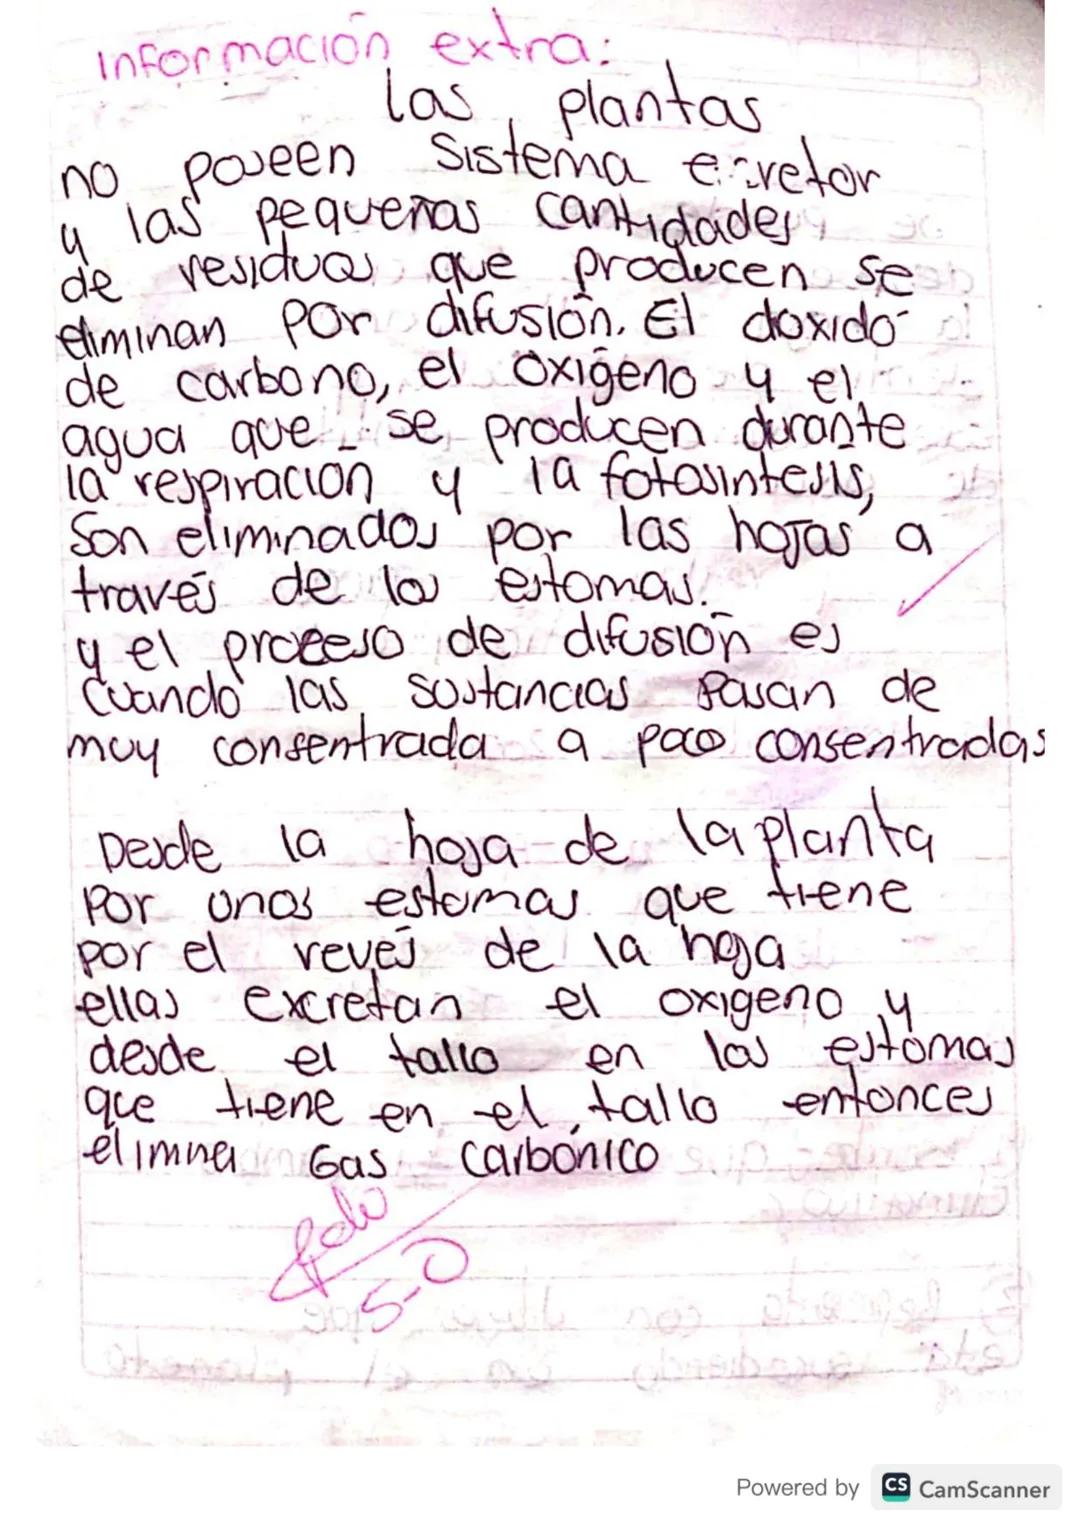 Información extra:
las plantas
no poseen Sistema
y las pequeñas cantidades
de residuos que producen se
eliminan por difusión. El doxido
de carbono, el oxigeno y el
agua que se producen durante
la respiracion y la fotosintesis,
Son eliminados por las hojas a
través de los estomas.
y el proceso de difusión es
Cuando las sustancias pasan de
muy consentrada a poco consentradas
Desde la hoja de la planta
Por unos estomas que tiene
por el revés de la hoja
ellas excretan el oxigeno y
desde el tallo en los estomas
que tiene en el tallo entonces
elimina Gas carbónico
5-0
Powered by CS CamScanner